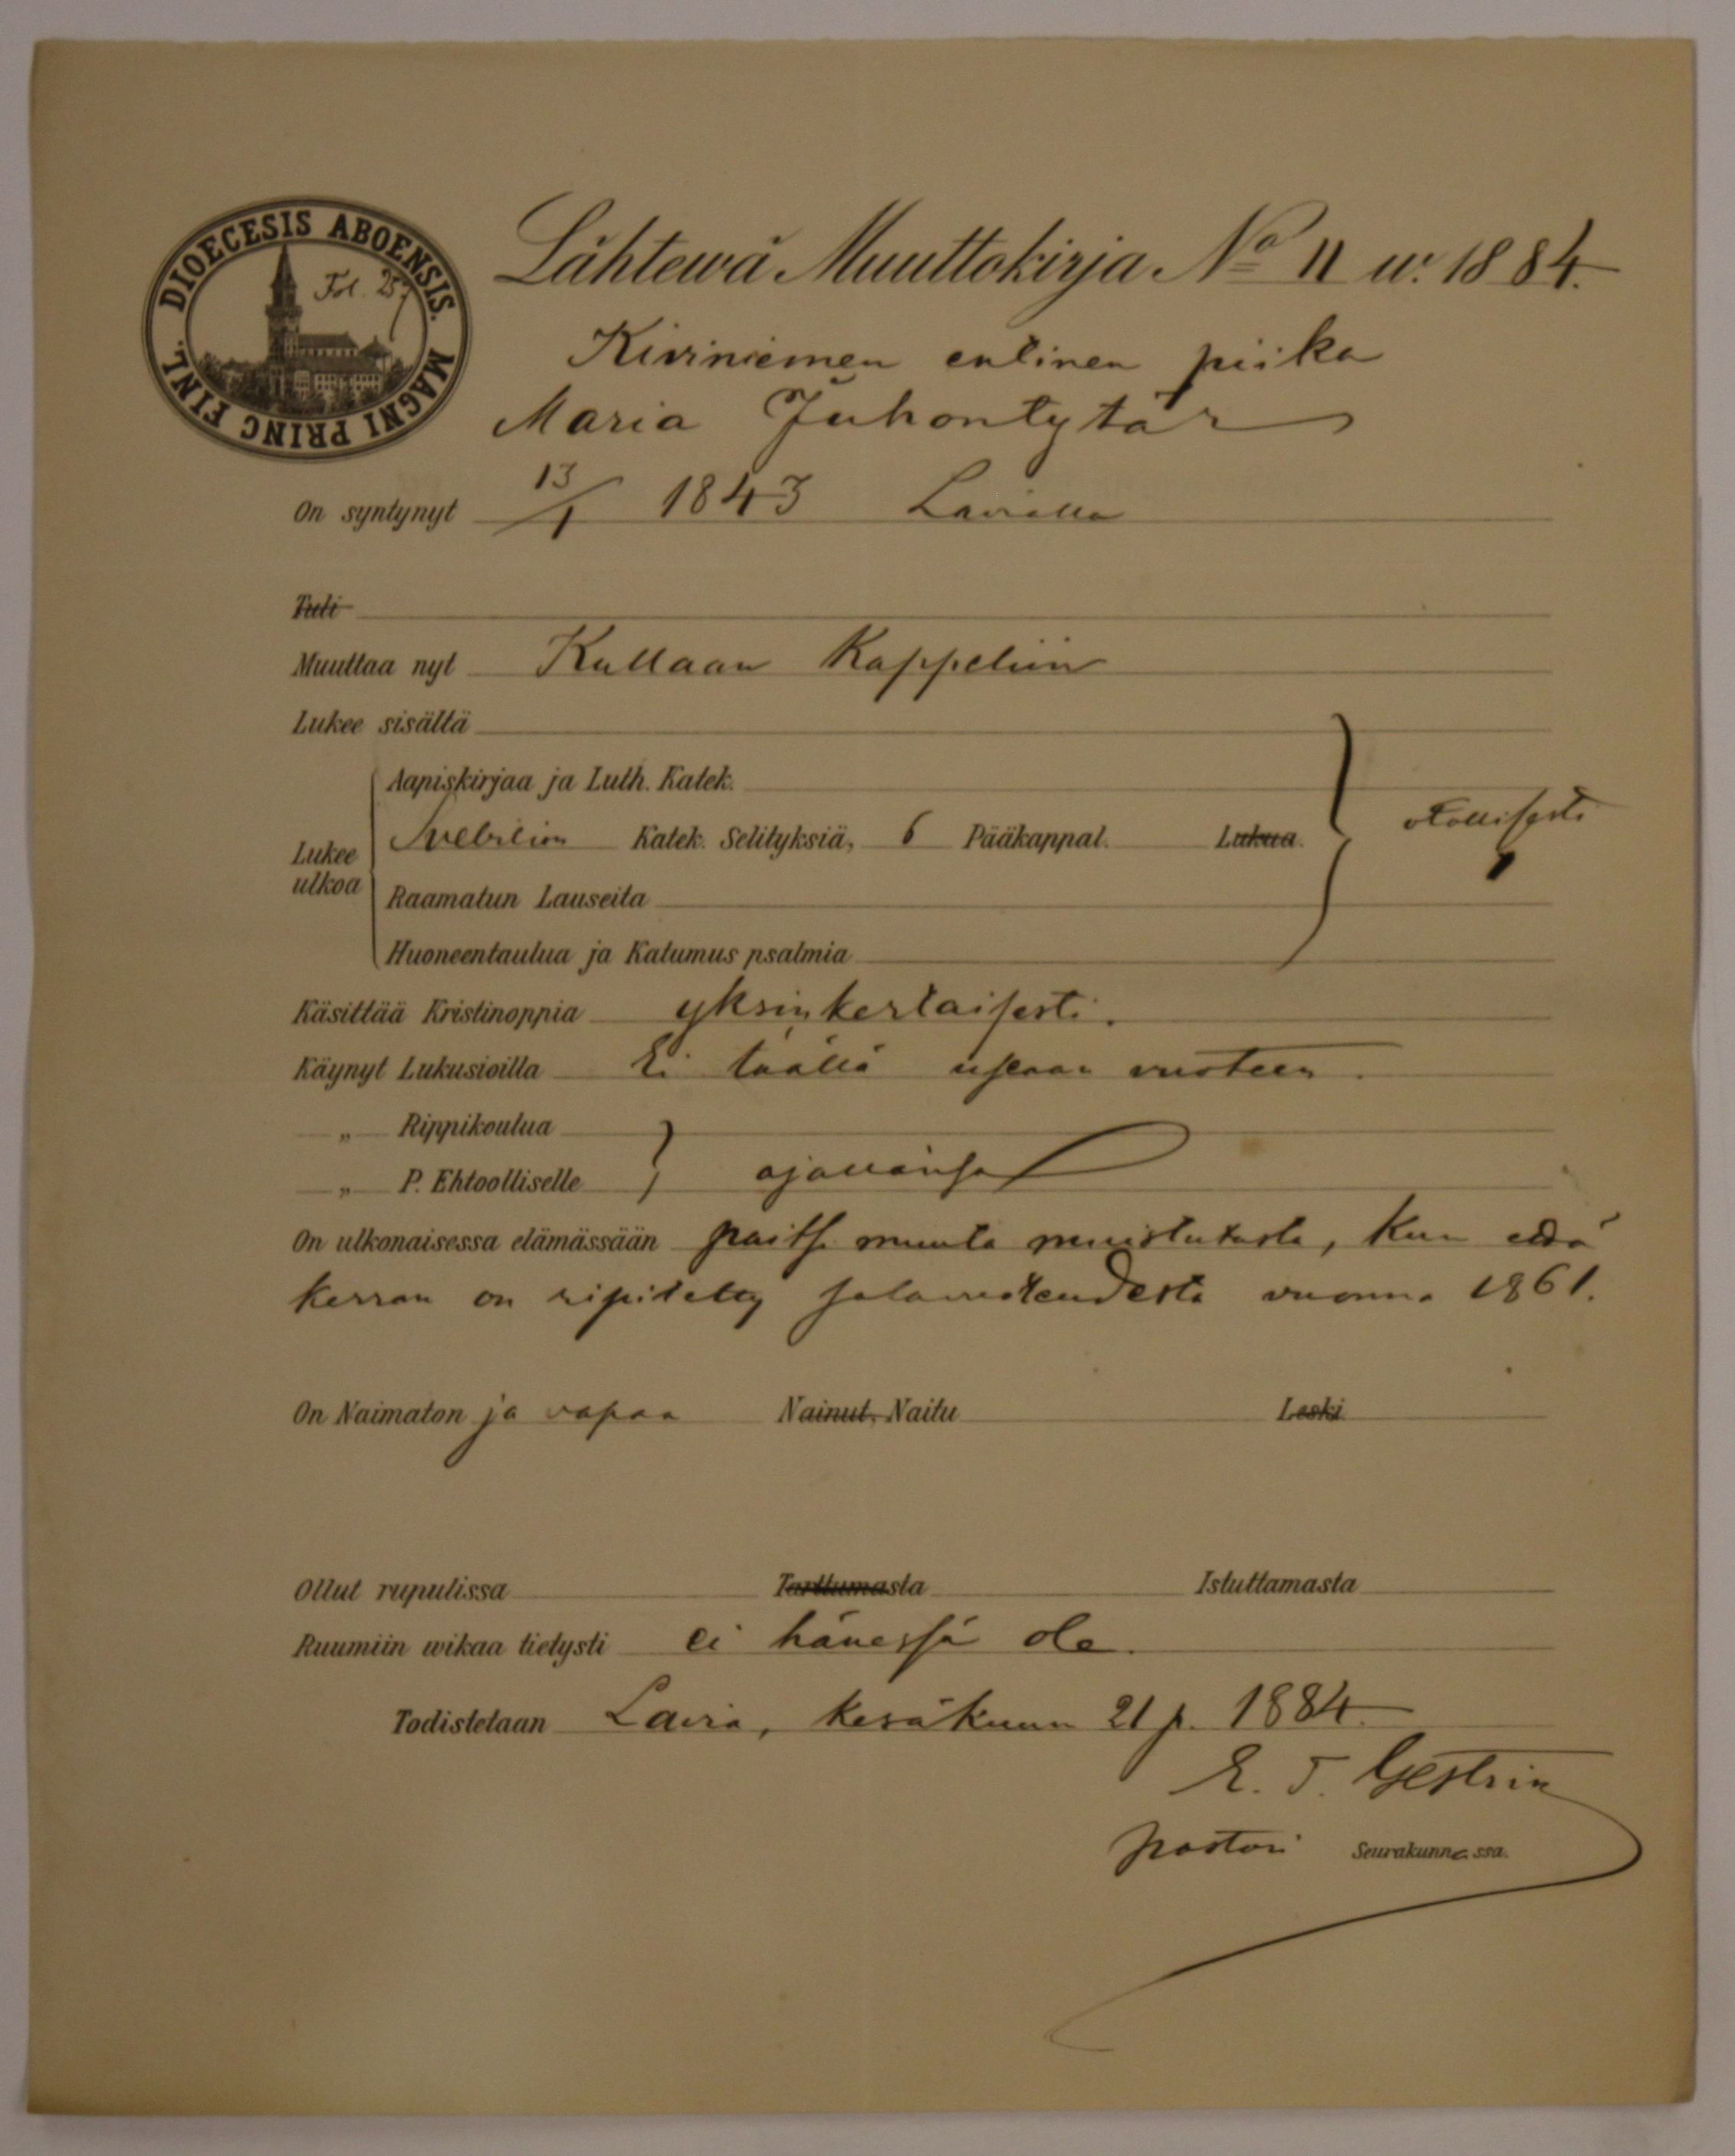 DIOECESIS ABOENSIS. MAGNI PRINC FINL.
Fol. 257
Lähtewä Muuttokirja No 11 w. 1884.
Kiviniemen entinen piika
Maria Juhontytär
On syntynyt 13/1 1843 Lavialla
Tuli
Muuttaa nyt Kullaan Kappeliin
Lukee sisältä
Aapiskirjaa ja Luth. Katek.
Lukee ulkoa Svebilion Katek. Selityksiä, 6 Pääkappal. Lukua.
Raamatun Lauseita
Huoneentaulua ja Katumus psalmia
Käsittää Kristinoppia yksinkertaisesti.
Käynyt Lukusioilla Ei täällä useaan vuoteen.
„ Rippikoulua
„ P. Ehtoolliselle ajallansa
On ulkonaisessa elämässään paitse muuta muistutusta, kun että
kerran on ripitetty salavuoteudesta vuonna 1861.
On Naimaton ja vapaa Nainut, Naitu Leski
Ollut rupulissa Tarttumasta Istuttamasta
Ruumiin wikaa tietysti ei hänessä ole.
Todistetaan Lavia, kesäkuun 21 p. 1884.
E. T. Gestrin
pastori Seurakunnassa.